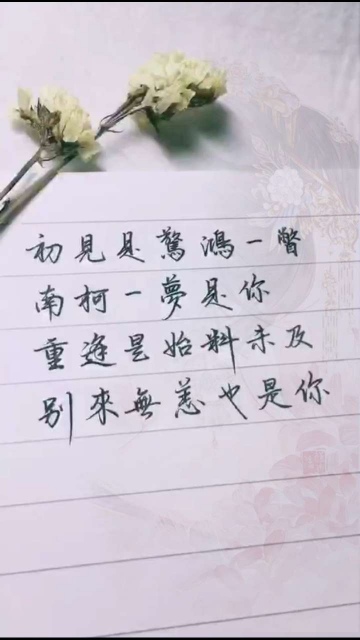 初見是驚鴻一瞥
南柯一夢是你
重逢是始料未及
别來無恙也是你